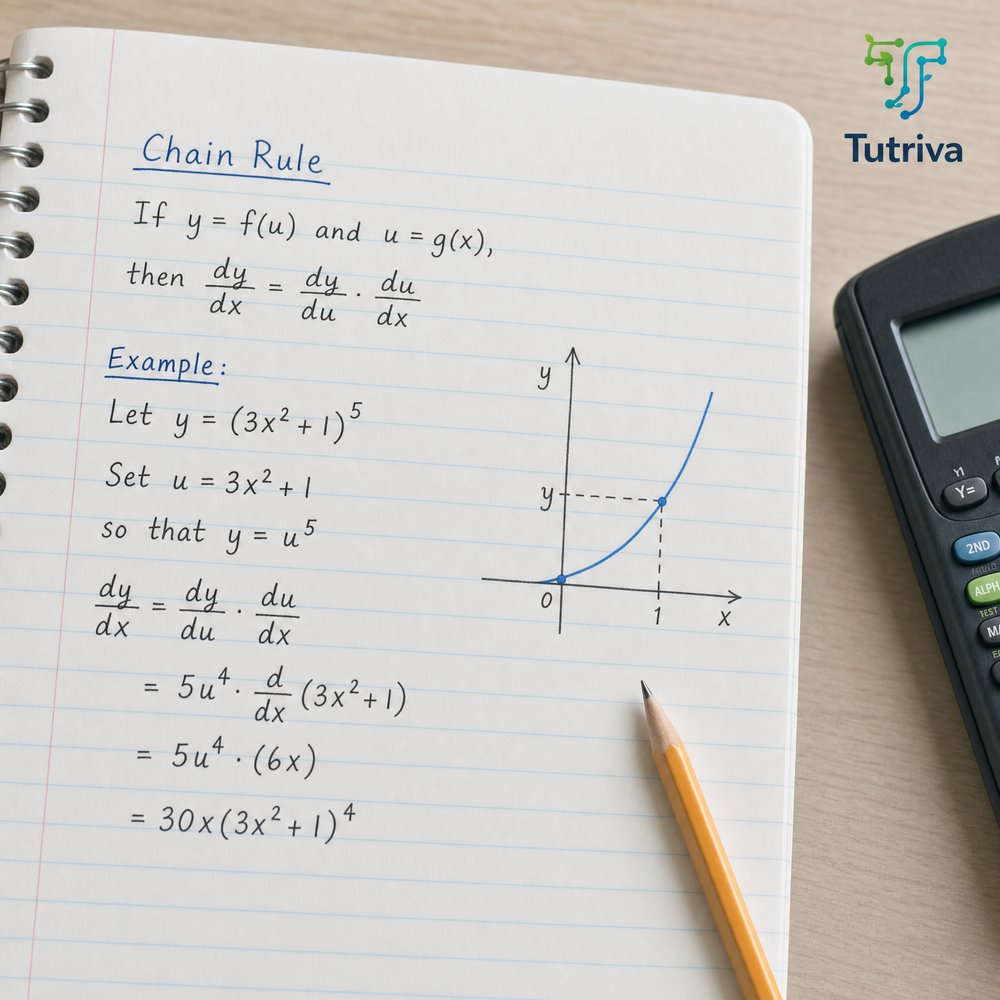 Tutriva
Chain Rule
If y = f(u) and u = g(x),
then dy/dx = dy/du · du/dx
Example:
Let y = (3x² + 1)⁵
Set u = 3x² + 1
so that y = u⁵
dy/dx = dy/du · du/dx
= 5u⁴ · d/dx (3x² + 1)
= 5u⁴ · (6x)
= 30x(3x² + 1)⁴
y
y
0
1
x
Y1
Y=
2ND